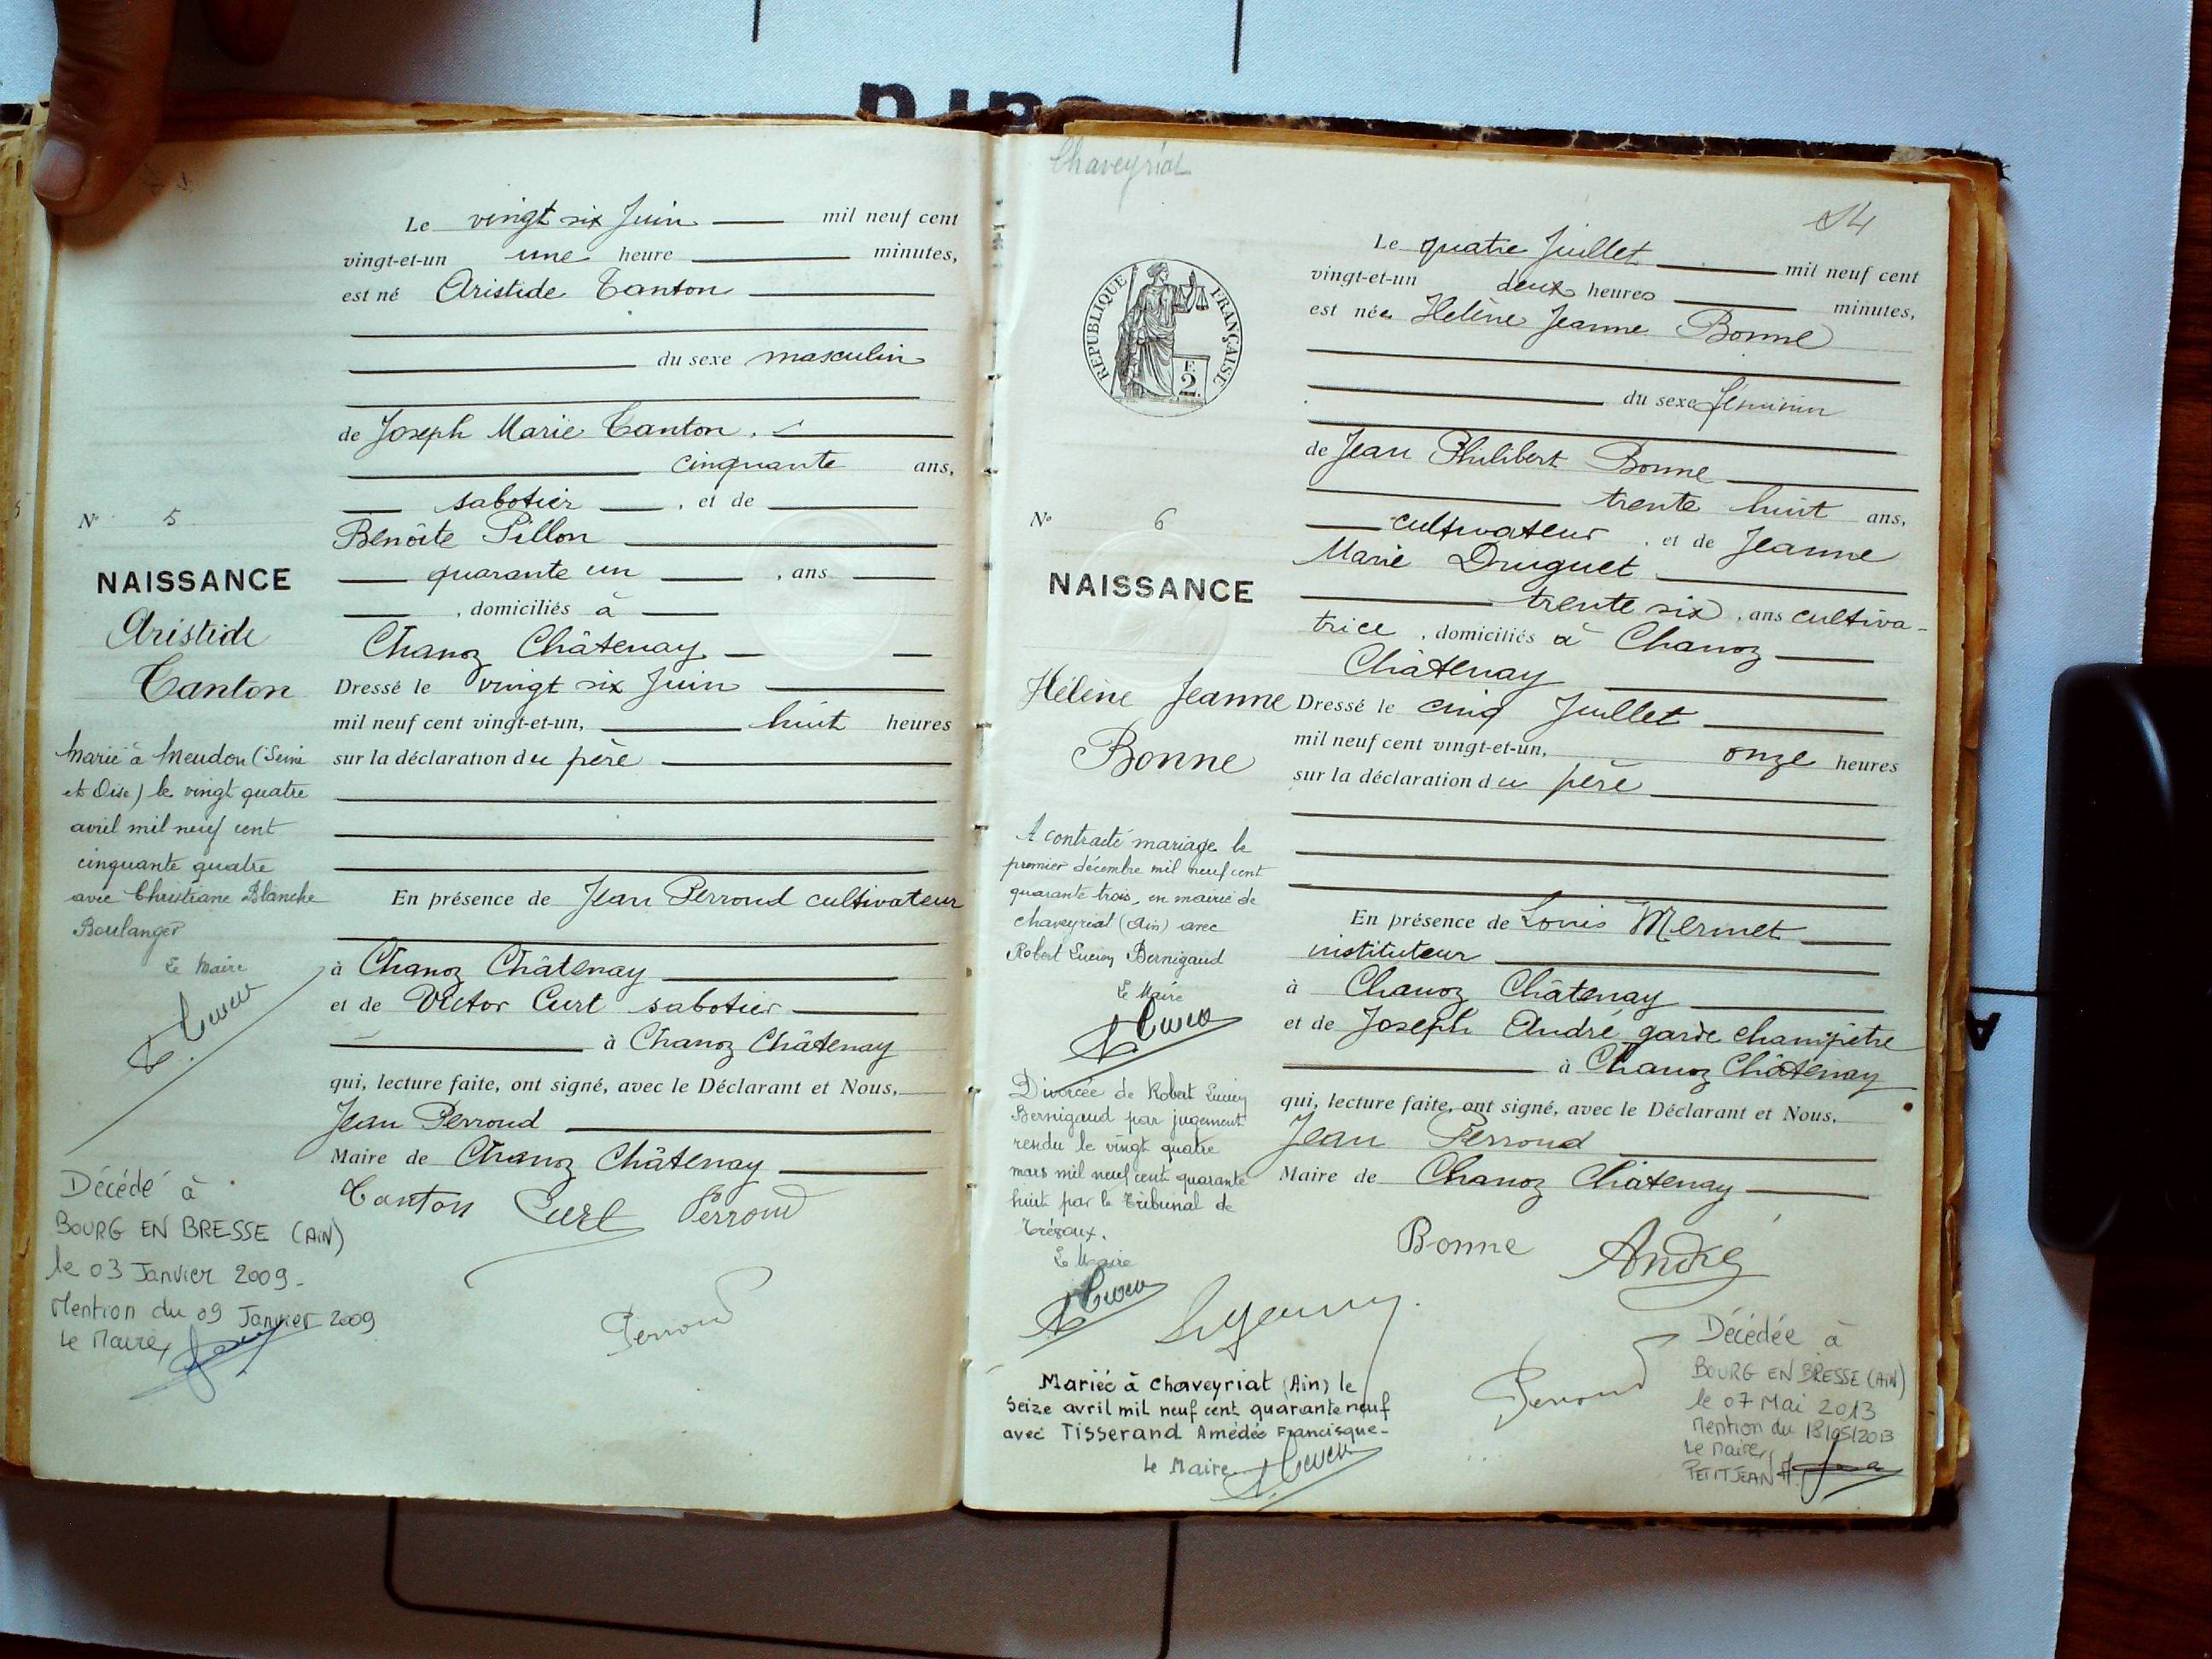 Le vingt six Juin mil neuf cent
vingt-et-un une heure minutes,
est né Aristide Tanton
du sexe masculin
de Joseph Marie Tanton.
cinquante ans,
sabotier, et de
Benoîte Pillon
quarante un, ans
, domiciliés à
Chanoz Châtenay
Dressé le vingt six Juin
mil neuf cent vingt-et-un, huit heures
sur la déclaration du père
En présence de Jean Perroud cultivateur
à Chanoz Châtenay
et de Victor Curt sabotier
à Chanoz Châtenay
qui, lecture faite, ont signé, avec le Déclarant et Nous,
Jean Perroud
Maire de Chanoz Châtenay
Tanton Curt Perroud
Perroud
N° 5
NAISSANCE
Aristide
Tanton
Marié à Meudon (Seine
et Oise) le vingt quatre
avril mil neuf cent
cinquante quatre
avec Christiane Blanche
Boulanger
Le Maire
Décédé à
BOURG EN BRESSE (AIN)
le 03 Janvier 2009-
Mention du 09 Janvier 2009
Le Maire,
Chaveyriat
14
RÉPUBLIQUE FRANÇAISE
F.
2.
Le quatre Juillet mil neuf cent
vingt-et-un deux heures minutes,
est née Hélène Jeanne Bonne
du sexe féminin
de Jean Philibert Bonne
trente huit ans,
cultivateur, et de Jeanne
Marie Druguet
trente six, ans cultiva-
trice, domiciliés à Chanoz
Châtenay
Dressé le cinq Juillet
mil neuf cent vingt-et-un, onze heures
sur la déclaration du père
En présence de Louis Mermet
instituteur
à Chanoz Châtenay
et de Joseph André garde champêtre
à Chanoz Châtenay
qui, lecture faite, ont signé, avec le Déclarant et Nous,
Jean Perroud
Maire de Chanoz Châtenay
Bonne André
Perroud
N° 6
NAISSANCE
Hélène Jeanne
Bonne
A contracté mariage le
premier décembre mil neuf cent
quarante trois, en mairie de
Chaveyriat (Ain) avec
Robert Lucien Bernigaud
Le Maire
Divorcée de Robert Lucien
Bernigaud par jugement
rendu le vingt quatre
mars mil neuf cent quarante
huit par le Tribunal de
Trévoux.
Le Maire
Mariée à Chaveyriat (Ain) le
Seize avril mil neuf cent quarante neuf
avec Tisserand Amédée Francisque-
Le Maire
Décédée à
BOURG EN BRESSE (AIN)
le 07 Mai 2013
Mention du 13/05/2013
Le Maire,
PETITJEAN
A